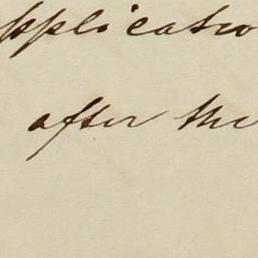 pplicatio
after the